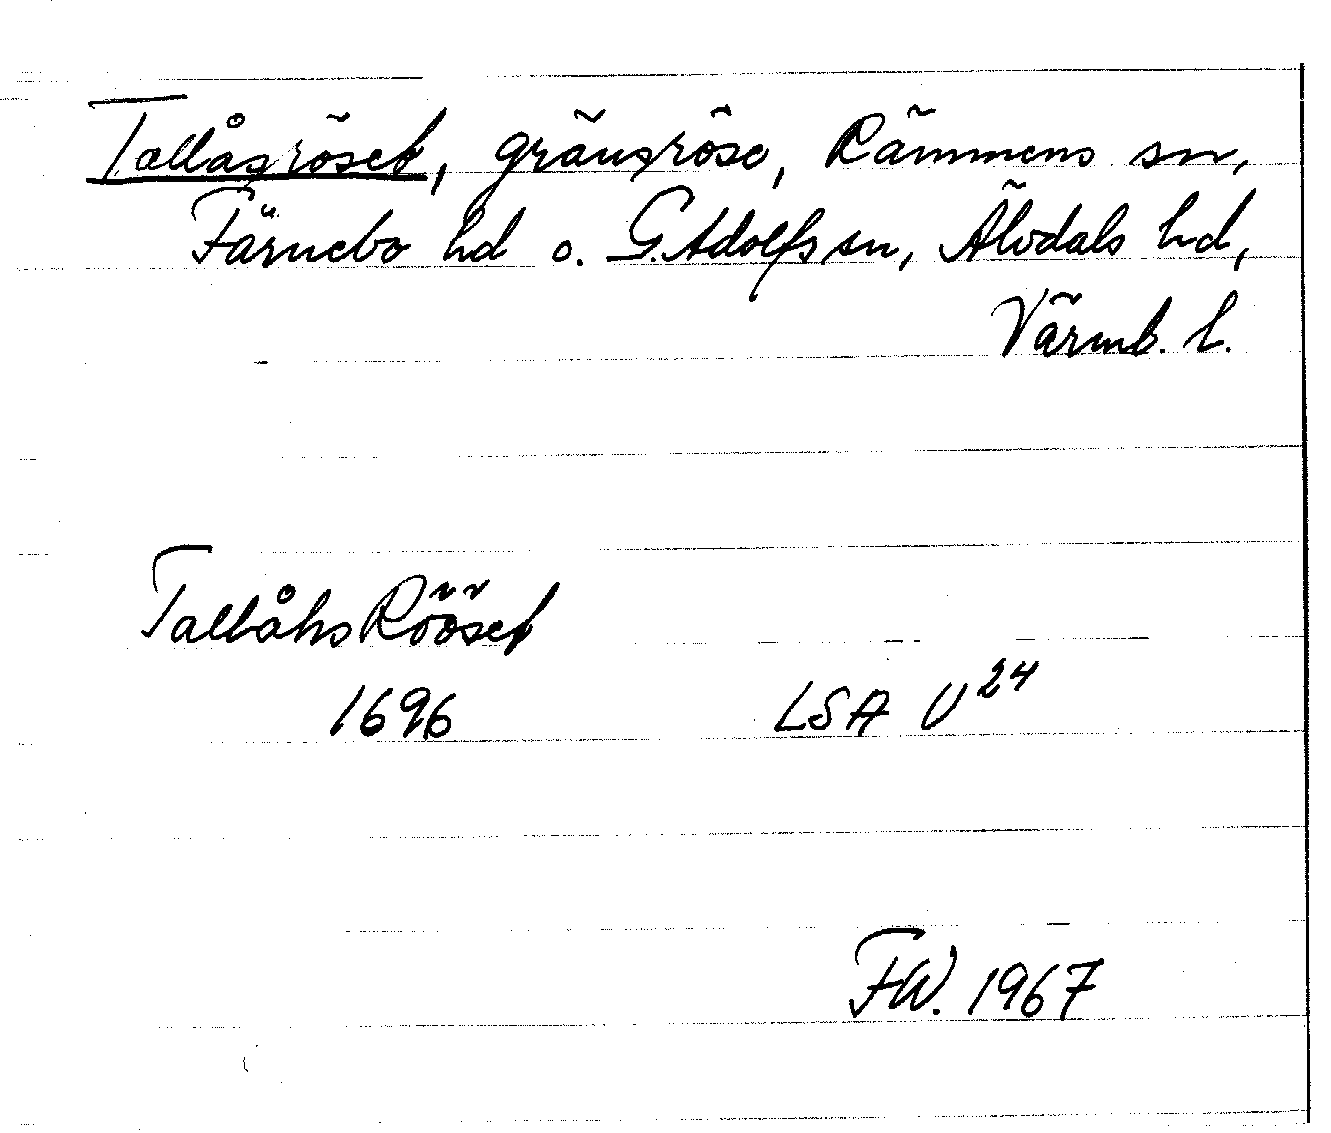 Tallåsröset, gränsröse, Rämmens sn,
Färnebo hd o. G. Adolfs sn, Älvdals hd,
Värml. l.
Tallåhs Rööset
1696 LSA U24
FW. 1967